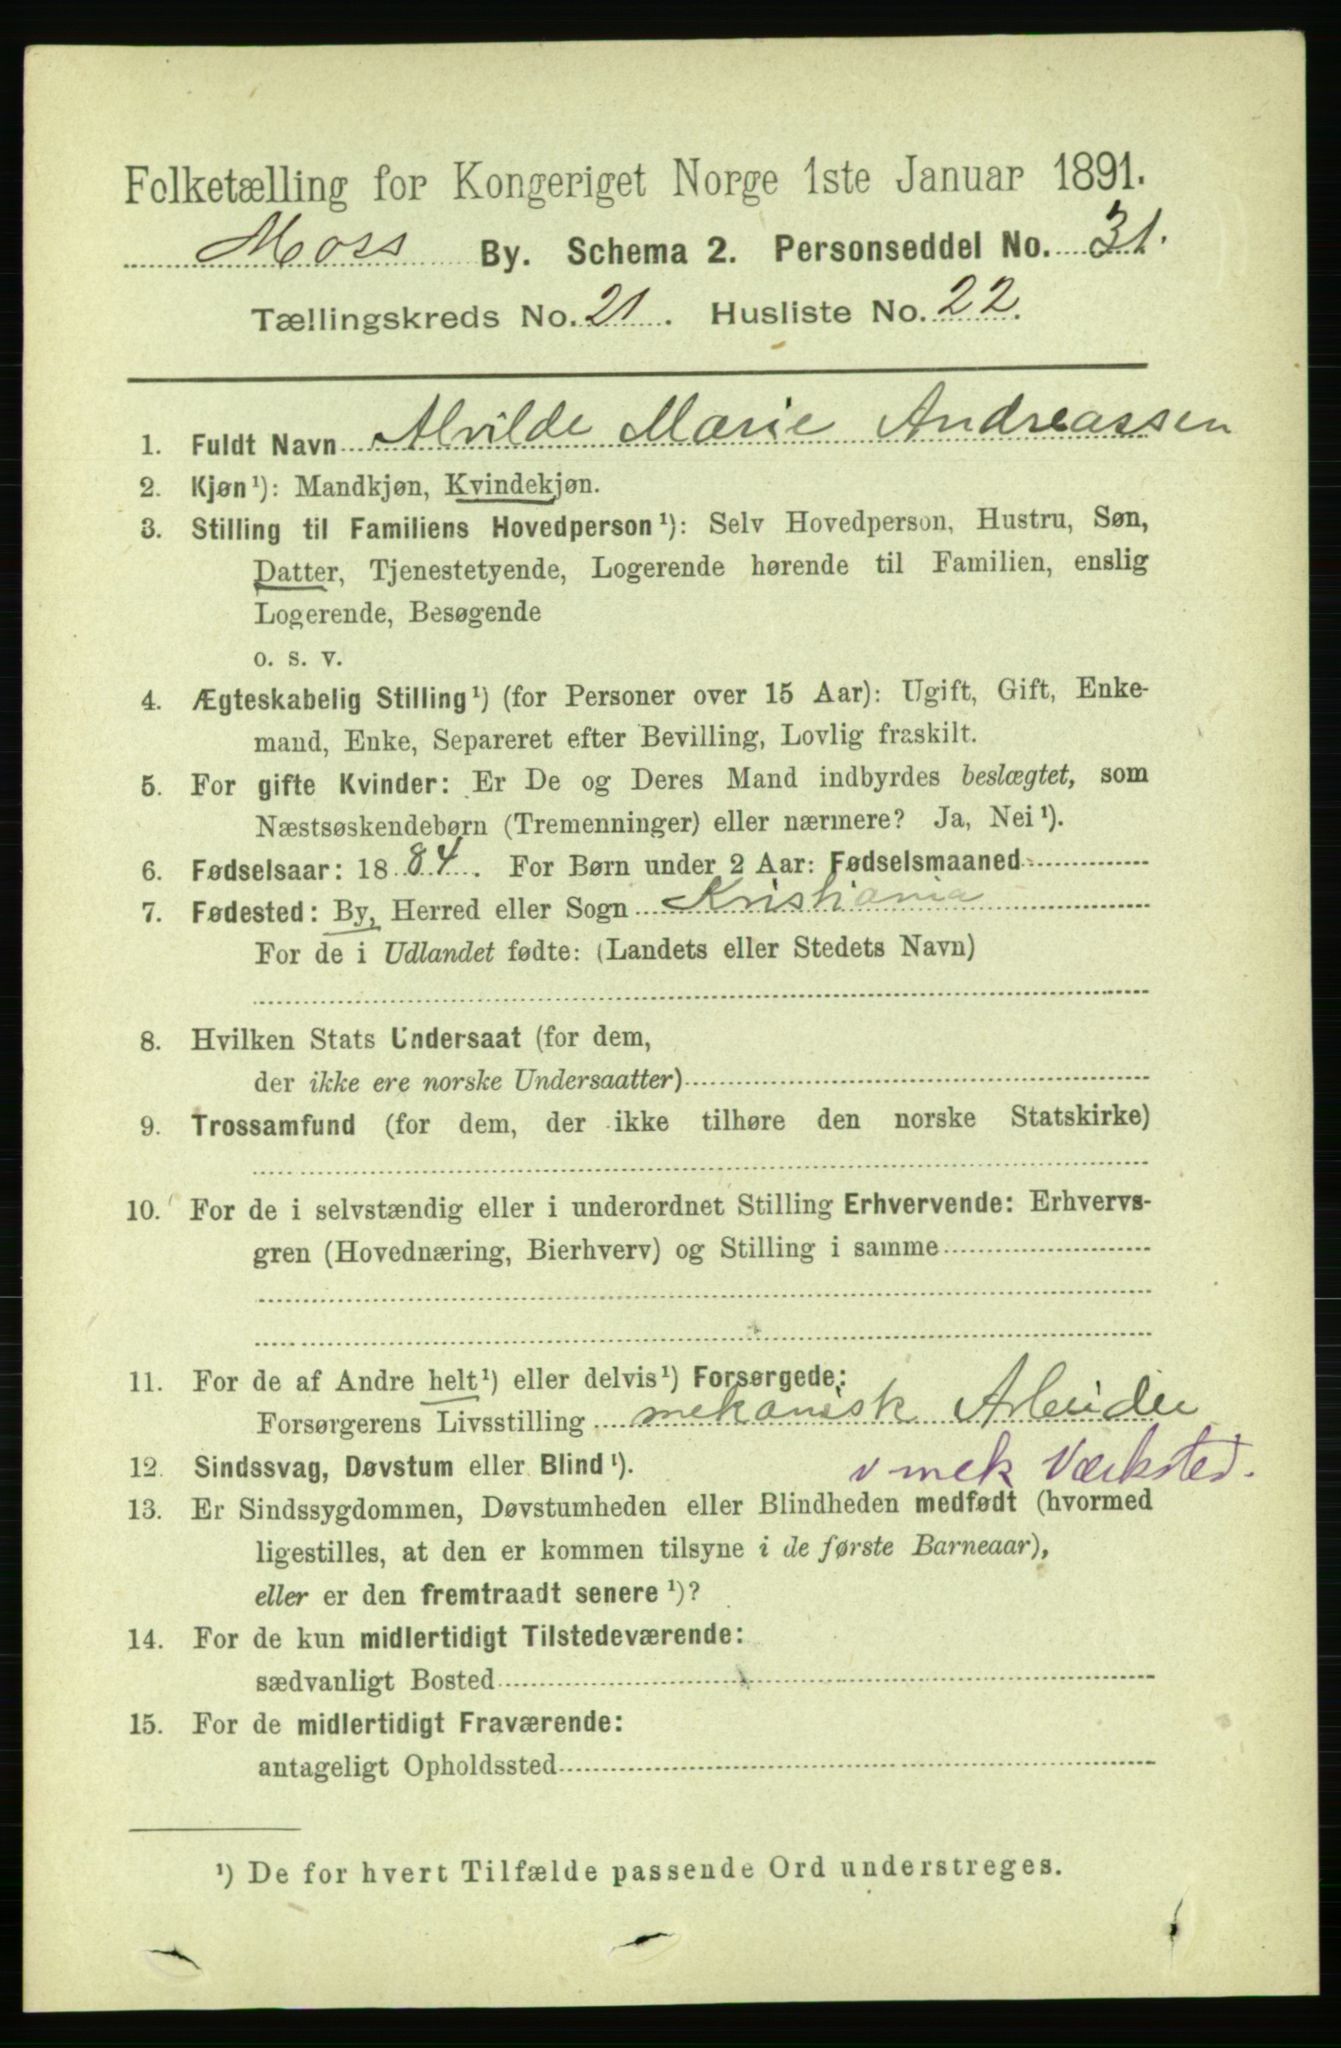 Folketælling for Kongeriget Norge 1ste Januar 1891.
Moss By. Schema 2. Personseddel No. 31.
Tællingskreds No. 21. Husliste No. 22.
1. Fuldt Navn Alvilde Marie Andreassen
2. Kjøn¹): Mandkjøn, Kvindekjøn.
3. Stilling til Familiens Hovedperson¹): Selv Hovedperson, Hustru, Søn,
Datter, Tjenestetyende, Logerende hørende til Familien, enslig
Logerende, Besøgende
o. s. v.
4. Ægteskabelig Stilling¹) (for Personer over 15 Aar): Ugift, Gift, Enke-
mand, Enke, Separeret efter Bevilling, Lovlig fraskilt.
5. For gifte Kvinder: Er De og Deres Mand indbyrdes beslægtet, som
Næstsøskendebørn (Tremenninger) eller nærmere? Ja, Nei¹).
6. Fødselsaar: 1884. For Børn under 2 Aar: Fødselsmaaned
7. Fødested: By, Herred eller Sogn Kristiania
For de i Udlandet fødte: (Landets eller Stedets Navn)
8. Hvilken Stats Undersaat (for dem,
der ikke ere norske Undersaatter)
9. Trossamfund (for dem, der ikke tilhøre den norske Statskirke)
10. For de i selvstændig eller i underordnet Stilling Erhvervende: Erhvervs-
gren (Hovednæring, Bierhverv) og Stilling i samme
11. For de af Andre helt¹) eller delvis¹) Forsørgede:
Forsørgerens Livsstilling mekanisk Arbeider
v mek Værksted.
12. Sindssvag, Døvstum eller Blind¹).
13. Er Sindssygdommen, Døvstumheden eller Blindheden medfødt (hvormed
ligestilles, at den er kommen tilsyne i de første Barneaar),
eller er den fremtraadt senere¹)?
14. For de kun midlertidigt Tilstedeværende:
sædvanligt Bosted
15. For de midlertidigt Fraværende:
antageligt Opholdssted
¹) De for hvert Tilfælde passende Ord understreges.